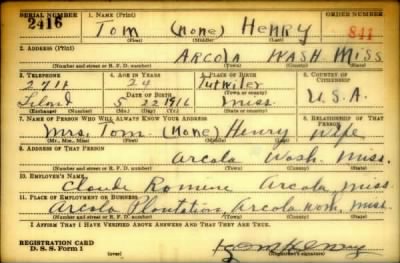 SERIAL NUMBER 1. NAME (Print) ORDER NUMBER
2416 TOM (None) HENRY 841
(First) (Middle) (Last)
2. ADDRESS (Print)
ARCOLA WASH MISS
(Number and street or R. F. D. number) (Town) (County) (State)
3. TELEPHONE 4. AGE IN YEARS 5. PLACE OF BIRTH 6. COUNTRY OF CITIZENSHIP
24 Tutwiler
DATE OF BIRTH (Town or county)
Leland 5 22 1916 Miss. U.S.A.
(Exchange) (Number) (Mo.) (Day) (Yr.) (State or country)
7. NAME OF PERSON WHO WILL ALWAYS KNOW YOUR ADDRESS 8. RELATIONSHIP OF THAT PERSON
Mrs. Tom (None) Henry Wife
(Mr., Mrs., Miss) (First) (Middle) (Last)
9. ADDRESS OF THAT PERSON
Arcola Wash. Miss.
(Number and street or R. F. D. number) (Town) (County) (State)
10. EMPLOYER'S NAME
Claude Romine Arcola, Miss.
11. PLACE OF EMPLOYMENT OR BUSINESS
Arcola Plantation, Arcola Miss.
(Number and street or R. F. D. number) (Town) (County) (State)
I AFFIRM THAT I HAVE VERIFIED ABOVE ANSWERS AND THAT THEY ARE TRUE.
REGISTRATION CARD
D. S. S. Form 1 (Registrant's signature)